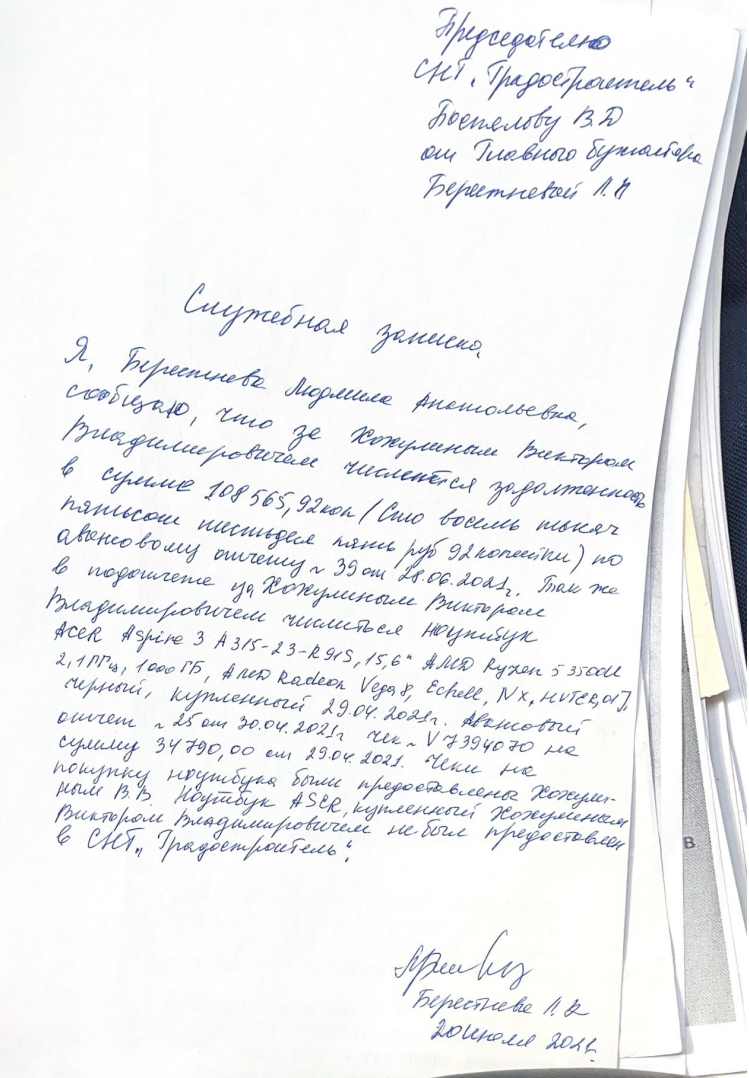 Председателю
СНТ „Градостроитель“
Поспелову В.Д
от Главного бухгалтера
Берестневой Л.А
Служебная записка.
Я, Берестнева Людмила Анатольевна,
сообщаю, что за Кожулиным Виктором
Владимировичем числится задолженность
в сумме 108 565,92коп (Сто восемь тысяч
пятьсот шестьдеся пять руб 92копейки) по
авансовому отчету № 39 от 28.06.2021г. Так же
в подотчете за Кожулиным Виктором
Владимировичем числиться ноутбук
Acer Aspire 3 A315-23-R91S, 15,6" AMD Ryzen 5 3500U
2,1ГГц, 1000ГБ, AMD Radeon Vega 8, Eshell, NX.HVTER.01J,
черный, купленный 29.04.2021г. Авансовый
отчет № 25 от 30.04.2021г. чек № V7394070 на
сумму 34790,00 от 29.04.2021. Чеки на
покупку ноутбука были предоставлены Кожули-
ным В.В. Ноутбук ASER, купленный Кожулиным
Виктором Владимировичем не был предоставлен
в СНТ „Градостроитель“.
Берестнева Л.А
20 июля 2021г.
В